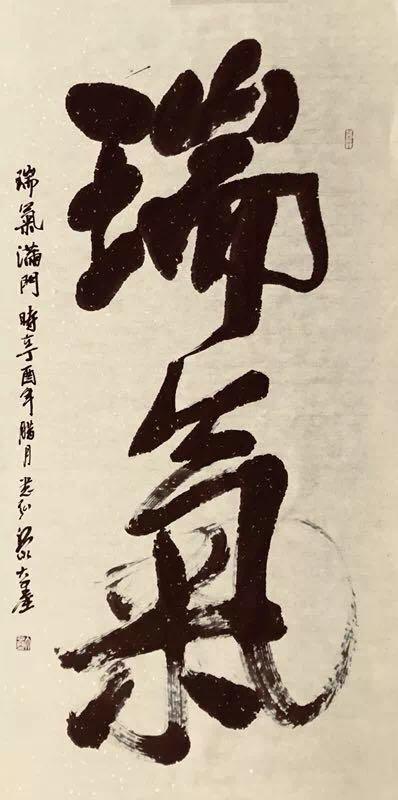 瑞氣
瑞氣滿門 時在丁酉年臘月